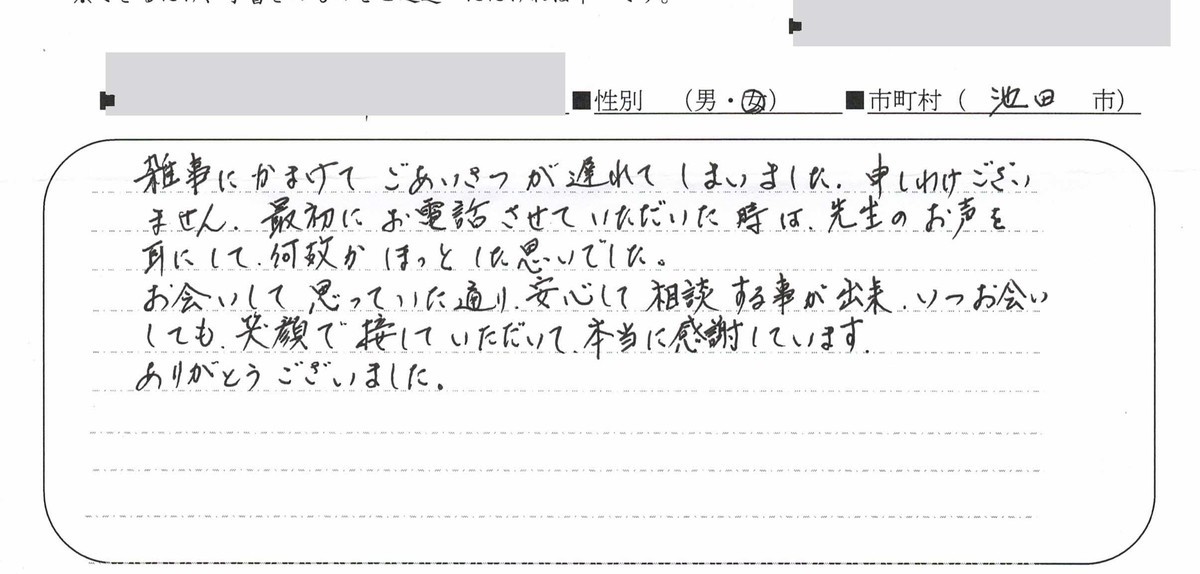 ■性別 （男・女） ■市町村（ 池田 市）
雑事にかまけて ごあいさつが遅れてしまいました. 申しわけござい
ません. 最初にお電話させていただいた時は. 先生のお声を
耳にして. 何故かほっとした思いでした。
お会いして思っていた通り. 安心して相談する事が出来. いつお会い
しても. 笑顔で接していただいて. 本当に感謝しています.
ありがとうございました。